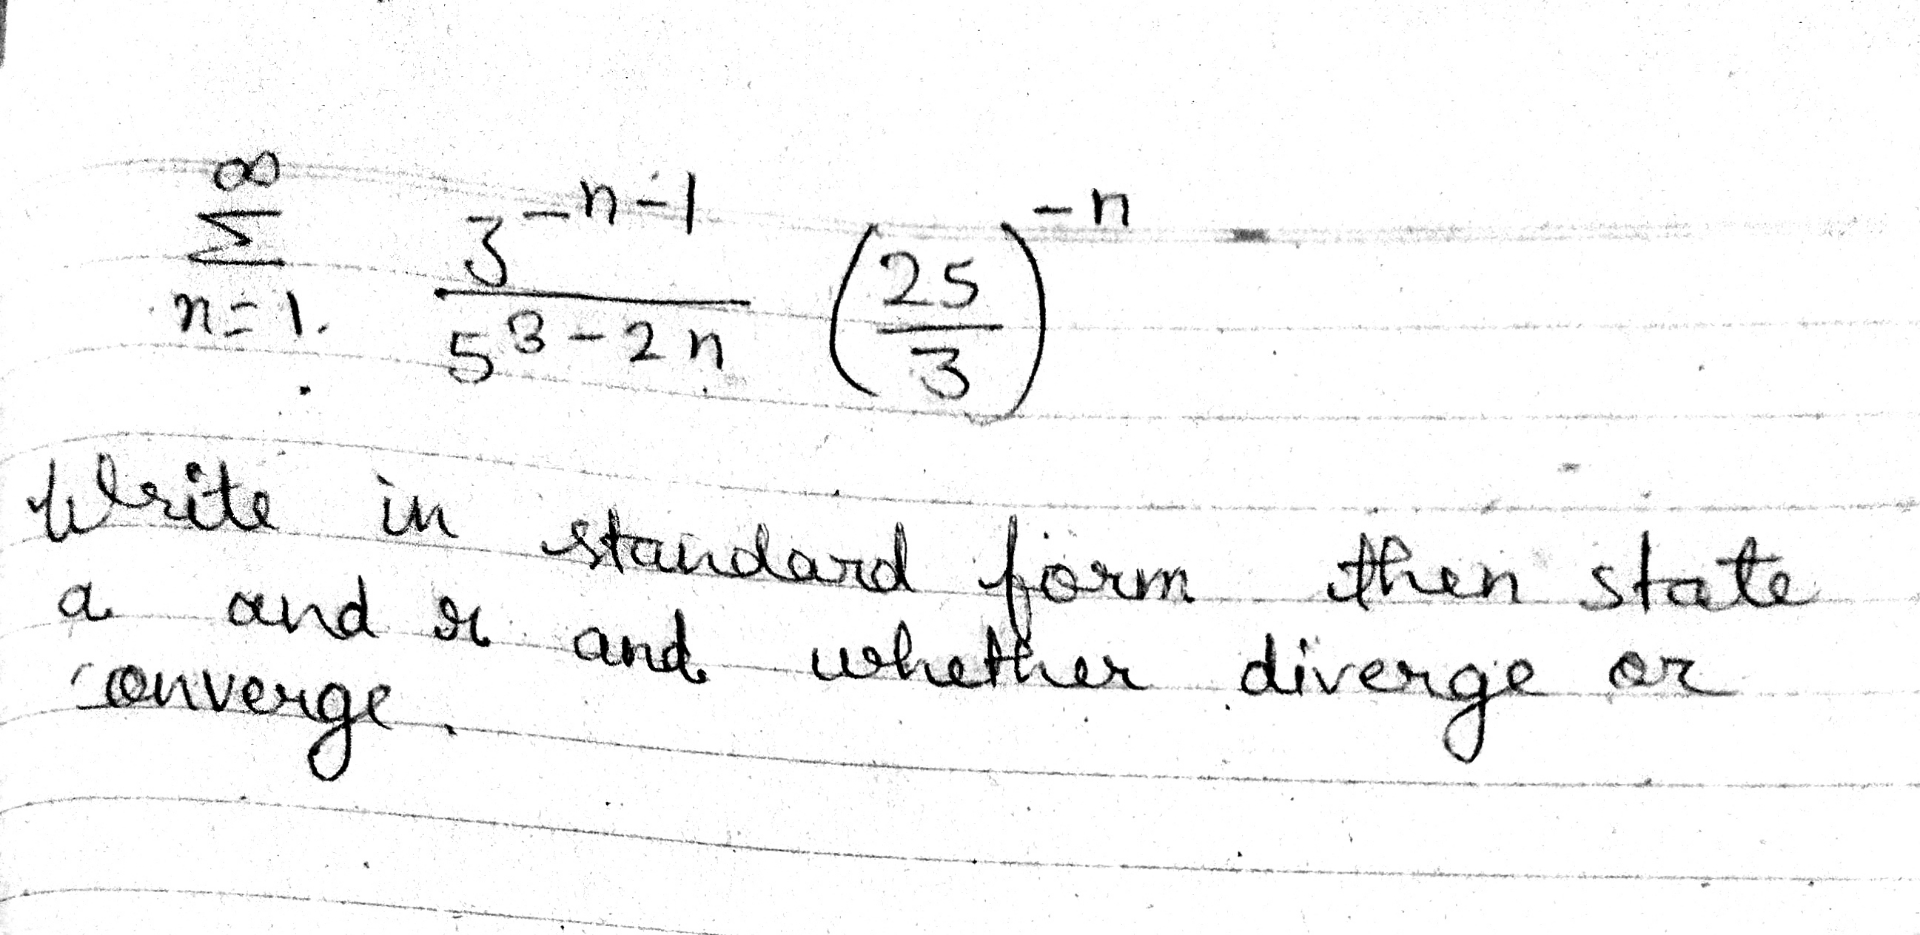 ∞
Σ 3^{-n-1} / 5^{3-2n} (25/3)^{-n}
n=1.
Write in standard form then state
a and r and whether diverge or
converge.